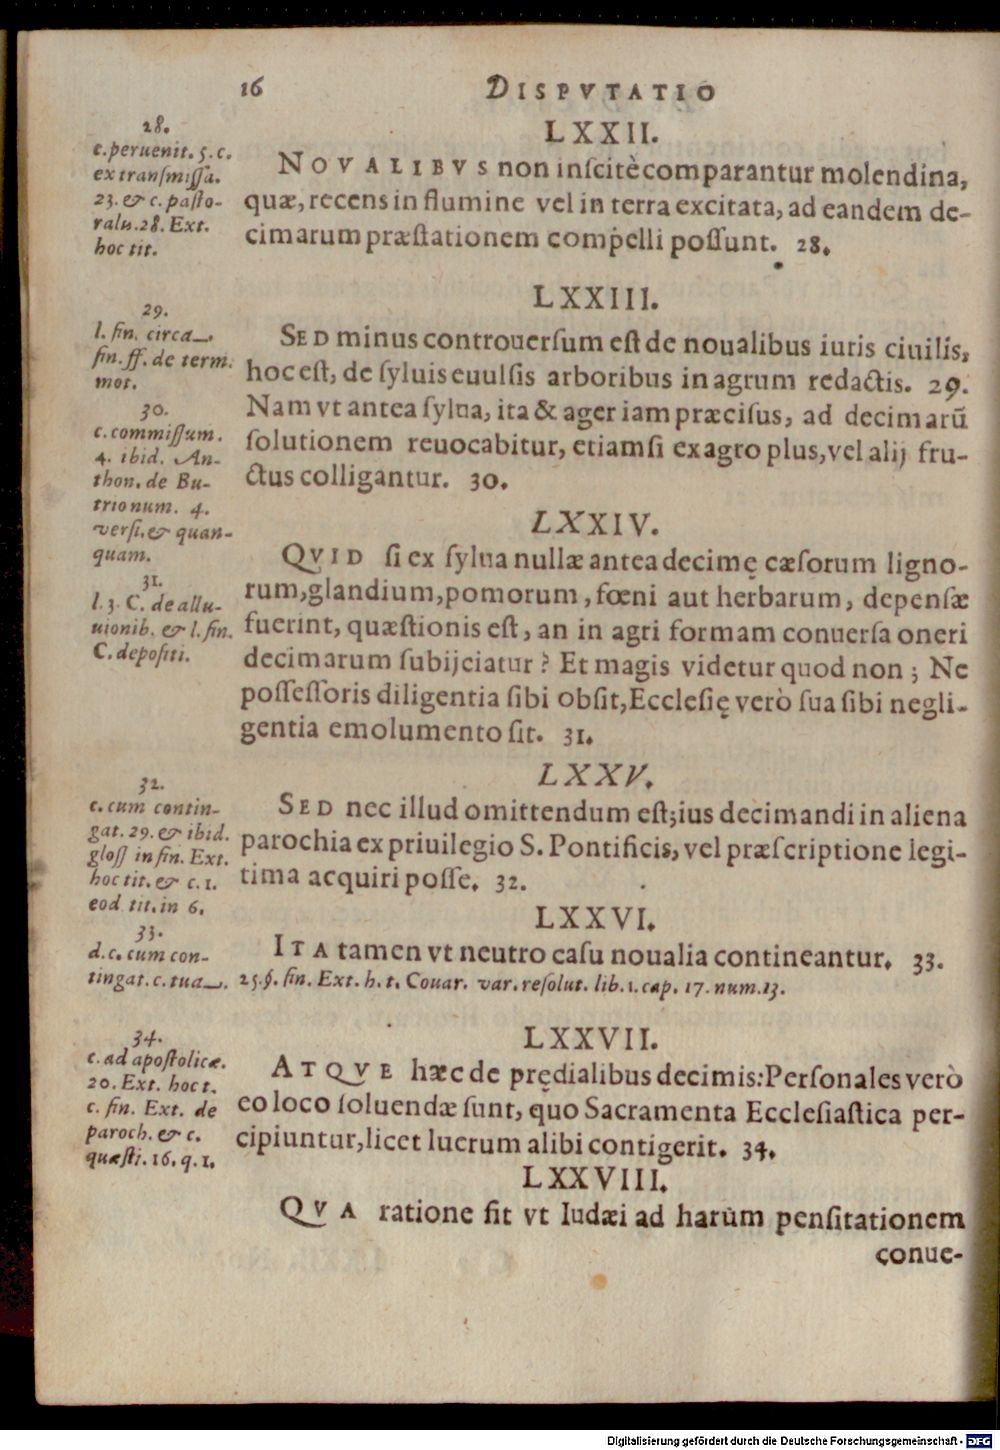 16 DISPVTATIO
28.
c. peruenit. 5. c.
ex transmissa.
23. & c. pasto-
ralu. 28. Ext.
hoc tit.
LXXII.
NOVALIBVS non inscitè comparantur molendina,
quæ, recens in flumine vel in terra excitata, ad eandem de-
cimarum præstationem compelli possunt. 28.
29.
l. fin. circa
fin. ff. de term.
mot.
30.
c. commissum.
4. ibid. An-
thon. de Bu-
trio num. 4.
versi. & quan-
quam.
LXXIII.
SED minus controuersum est de noualibus iuris ciuilis,
hoc est, de syluis euulsis arboribus in agrum redactis. 29.
Nam vt antea sylua, ita & ager iam præcisus, ad decimarū
solutionem reuocabitur, etiamsi ex agro plus, vel alij fru-
ctus colligantur. 30.
31.
l. 3. C. de allu-
uionib. & l. fin.
C. depositi.
LXXIV.
QVID si ex sylua nullæ antea decimę cæsorum ligno-
rum, glandium, pomorum, fœni aut herbarum, depensæ
fuerint, quæstionis est, an in agri formam conuersa oneri
decimarum subijciatur? Et magis videtur quod non; Ne
possessoris diligentia sibi obsit, Ecclesię verò sua sibi negli-
gentia emolumento sit. 31.
32.
c. cum contin-
gat. 29. & ibid.
gloss in fin. Ext.
hoc tit. & c. 1.
eod. tit. in 6.
LXXV.
SED nec illud omittendum est; ius decimandi in aliena
parochia ex priuilegio S. Pontificis, vel præscriptione legi-
tima acquiri posse. 32.
33.
d. c. cum con-
tingat. c. tua
LXXVI.
ITA tamen vt neutro casu noualia contineantur. 33.
25. §. fin. Ext. h. t. Couar. var. resolut. lib. 1. cap. 17. num. 13.
34.
c. ad apostolicæ.
20. Ext. hoc t.
c. fin. Ext. de
paroch. & c.
quæsti. 16. q. 1.
LXXVII.
ATQVE hæc de prędialibus decimis: Personales verò
eo loco soluendæ sunt, quo Sacramenta Ecclesiastica per-
cipiuntur, licet lucrum alibi contigerit. 34.
LXXVIII.
QVA ratione fit vt Iudæi ad harum pensitationem
conue-
Digitalisierung gefördert durch die Deutsche Forschungsgemeinschaft - DFG